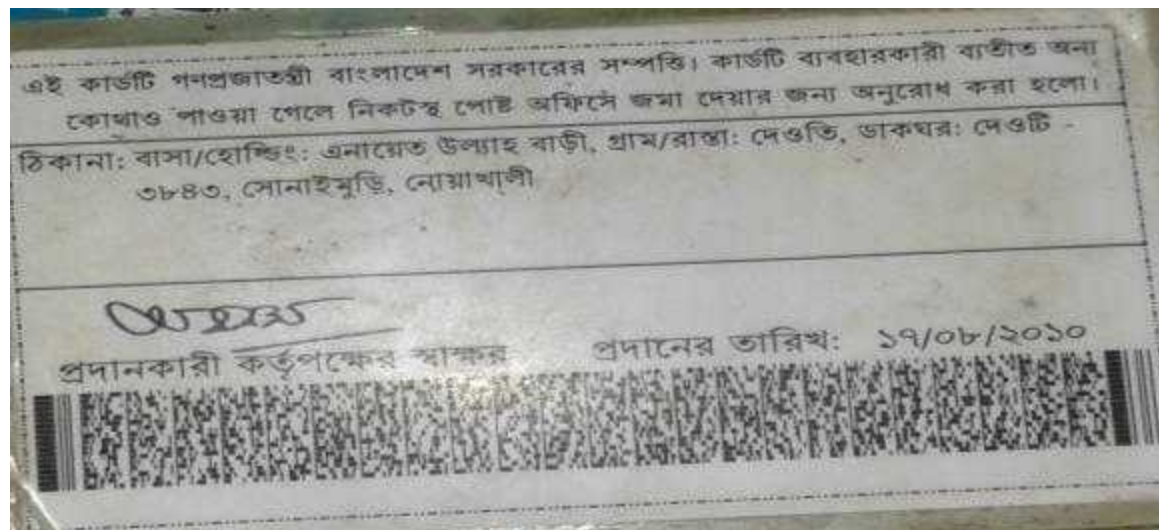 এই কার্ডটি গণপ্রজাতন্ত্রী বাংলাদেশ সরকারের সম্পত্তি। কার্ডটি ব্যবহারকারী ব্যতীত অন্য
কোথাও পাওয়া গেলে নিকটস্থ পোষ্ট অফিসে জমা দেয়ার জন্য অনুরোধ করা হলো।
ঠিকানা: বাসা/হোল্ডিং: এনায়েত উল্যাহ বাড়ী, গ্রাম/রাস্তা: দেওতি, ডাকঘর: দেওটি -
৩৮৪৩, সোনাইমুড়ি, নোয়াখালী
প্রদানকারী কর্তৃপক্ষের স্বাক্ষর প্রদানের তারিখ: ১৭/০৮/২০১০